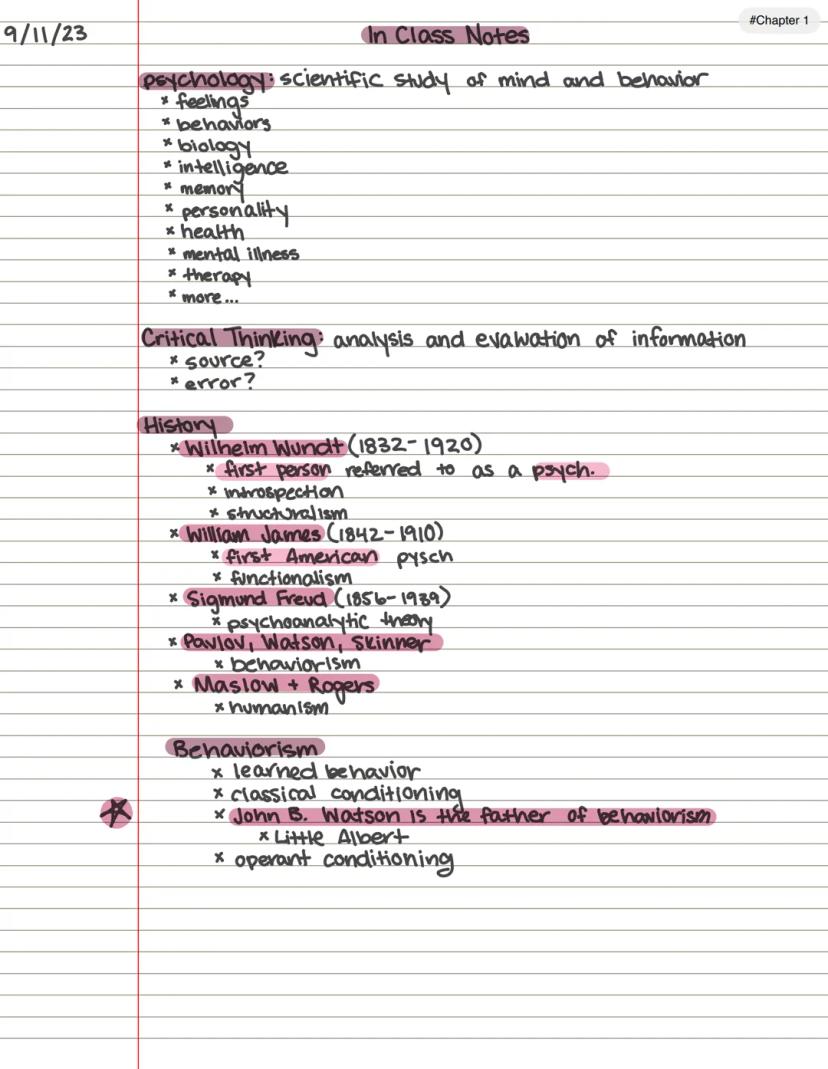 #Chapter 1
9/11/23
In Class Notes
psychology: scientific study of mind and behavior
x feelings
x behaviors
x biology
x intelligence
x memory
x personality
x health
x mental illness
x therapy
x more...
Critical Thinking: analysis and evaluation of information
x source?
x error?
History
x Wilhelm Wundt (1832-1920)
x first person referred to as a psych.
x introspection
x structuralism
x William James (1842-1910)
x first American pysch
x functionalism
x Sigmund Freud (1856-1939)
x psychoanalytic theory
x Pavlov, Watson, Skinner
x behaviorism
x Maslow + Rogers
x humanism
Behaviorism
x learned behavior
x classical conditioning
x John B. Watson is the father of behaviorism
x Little Albert
x operant conditioning